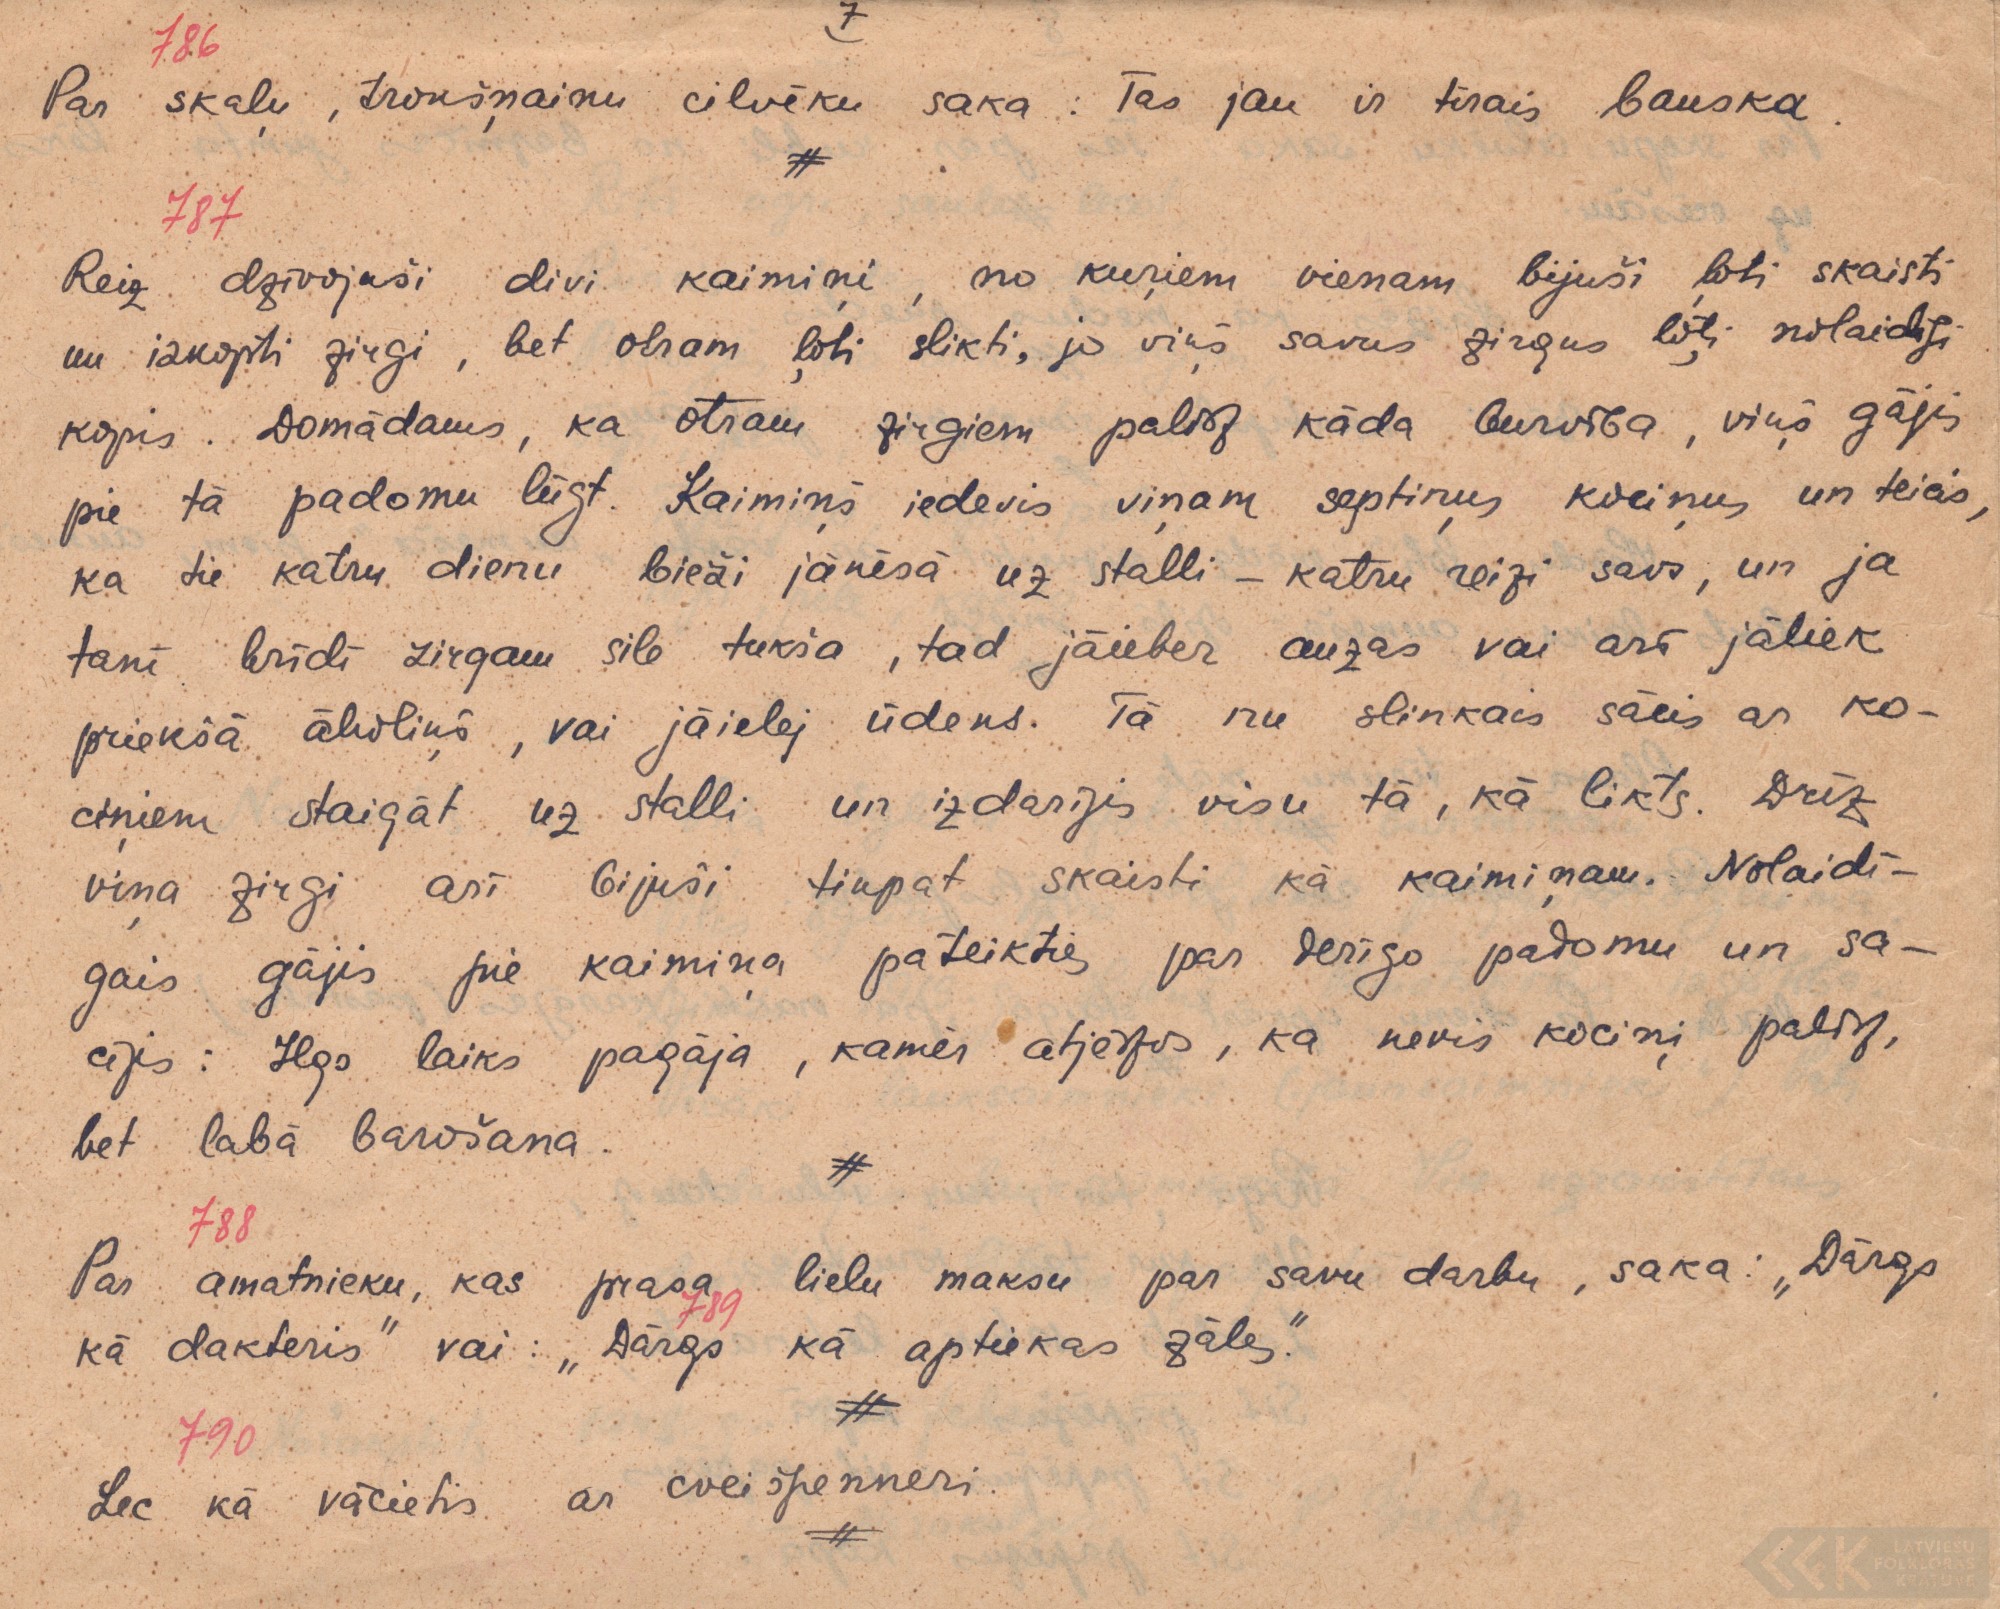 7
786
Par skaļu, trokšņainu cilvēku saka: Tas jau ir tīrais bauska.
#
787
Reiz dzīvojuši divi kaimiņi, no kuŗiem vienam bijuši ļoti skaisti
un izkopti zirgi, bet otram ļoti slikti, jo viņš savus zirgus ļoti nolaidīgi
kopis. Domādams, ka otram zirgiem palīdz kāda burvība, viņš gājis
pie tā padomu lūgt. Kaimiņš iedevis viņam septiņus kociņus un teicis,
ka tie katru dienu bieži jānēsā uz stalli – katru reizi savs, un ja
tanī brīdī zirgam sile tukša, tad jāieber auzas vai arī jāliek
priekšā āboliņš, vai jāielej ūdens. Tā nu slinkais sācis ar ko-
ciņiem staigāt uz stalli un izdarījis visu tā, kā likts. Drīz
viņa zirgi arī bijuši tiupat skaisti kā kaimiņam. Nolaidī-
gais gājis pie kaimiņa pateikties par derīgo padomu un sa-
cījis: Ilgs laiks pagāja, kamēr atjēdzos, ka nevis kociņi palīdz,
bet labā barošana.
#
788
Par amatnieku, kas prasa lielu maksu par savu darbu, saka: „Dārgs
789
kā dakteris" vai: „Dārgs kā aptiekas zāles."
#
790
Lec kā vācietis ar cveišpenneri.
#
LATVIEŠU
FOLKLORAS
KRĀTUVE